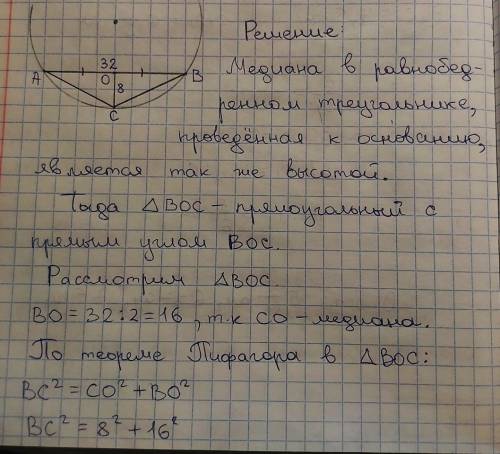 Решение:
32
A O B
8
C
Медиана в равнобед-
ренном треугольнике,
проведённая к основанию,
является так же высотой.
Тогда △BOC – прямоугольный с
прямым углом BOC.
Рассмотрим △BOC.
BO = 32:2 = 16, т.к CO – медиана.
По теореме Пифагора в △BOC:
BC² = CO² + BO²
BC² = 8² + 16²